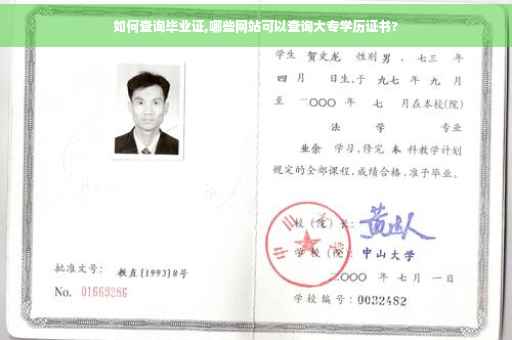 如何查询毕业证,哪些网站可以查询大专学历证书?
学生 贺文龙 性别 男 、七三 年
四 月 日生,于 九七 年 九 月
至 二〇〇〇 年 七 月在本校(院)
法 学 专业
业余 学习,修完 本 科教学计划
规定的全部课程,成绩合格,准予毕业。
校(院)长:
学校(院):中山大学
二〇〇〇 年 七 月 一 日
学校编号:0032482
批准文号: 教直[1993]8号
No. 01669286